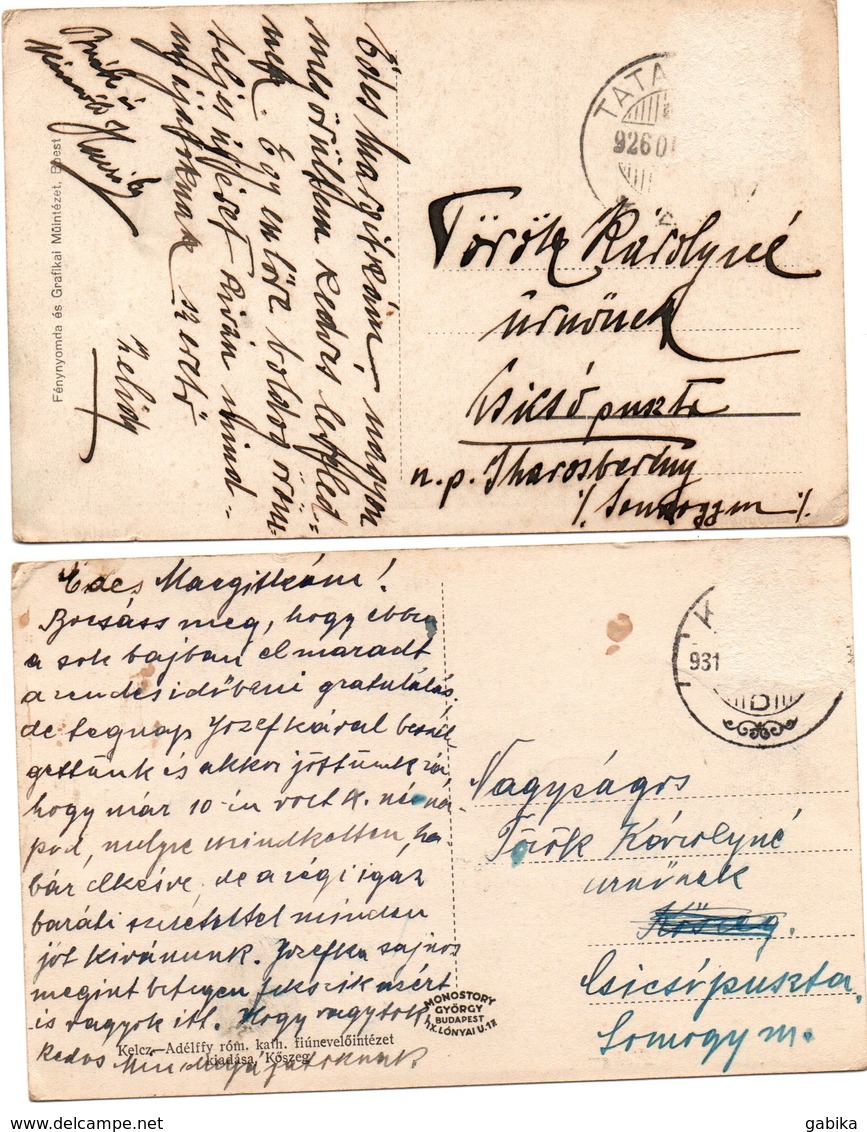 Édes Margitkám, nagyon
megörültem kedves leveled-
nek. Egy előre boldog öröm-
teljes ünnepet kíván mind-
nyájatoknak szerető
Zelidy
Fénynyomda és Grafikai Műintézet, Bpest
TATA
926
Török Károlyné
úrnőnek
Csicsó puszta
n.p. Iharosberény
/. Somogy m /.
Edes Margitkám!
Bocsáss meg, hogy ebbe
a sok bajban elmaradt
a rendes időbeni gratulálás.
de tegnap Jozefkával beszél
gettünk és akkor jöttünk rá,
hogy már 10-én volt k. névna-
pod, melyre mindketten, ha-
bár elkésve, de a régi igaz
baráti szeretettel minden
jót kivánunk. Jozefka sajnos
megint betegen fekszik azért
is vagyok itt. Hogy vagytok
kedves Mindnyájatoknak
Kelcz—Adélffy róm. kath. fiúnevelőintézet
kiadása, Kőszeg
MONOSTORY
GYÖRGY
BUDAPEST
IX. LÓNYAI U. 12
K
931
D
Nagyságos
Török Károlyné
urnőnek
Kőszeg.
Csicsópuszta,
Somogy m.
gabika